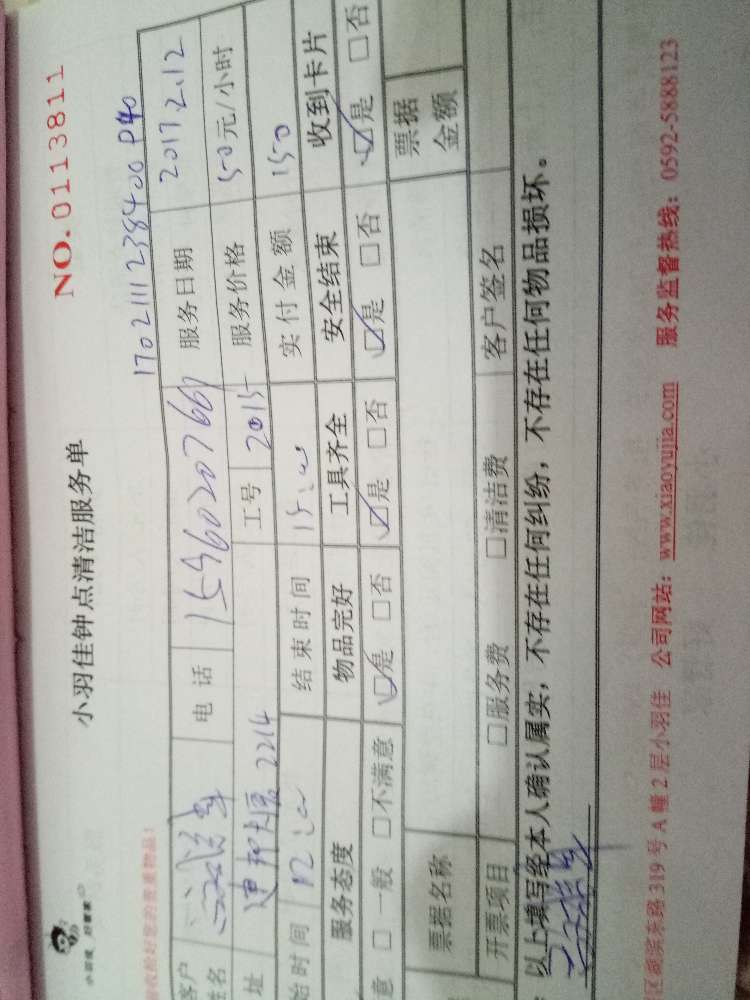 小羽佳钟点清洁服务单
NO.0113811
1702111238400 P40
客户姓名 电话 服务日期 2017.2.12
址 2214 工号 2015 服务价格 50元/小时
始时间 12:00 结束时间 15:00 实付金额 150
服务态度 物品完好 工具齐全 安全结束 收到卡片
意 □一般 □不满意 ☑是 □否 ☑是 □否 ☑是 □否 ☑是 □否
票据名称 票据金额
开票项目 □服务费 □清洁费 客户签名
以上填写经本人确认属实，不存在任何纠纷，不存在任何物品损坏。
区湖滨东路319号A幢2层小羽佳 公司网站：www.xiaoyujia.com 服务监督热线：0592-5888123